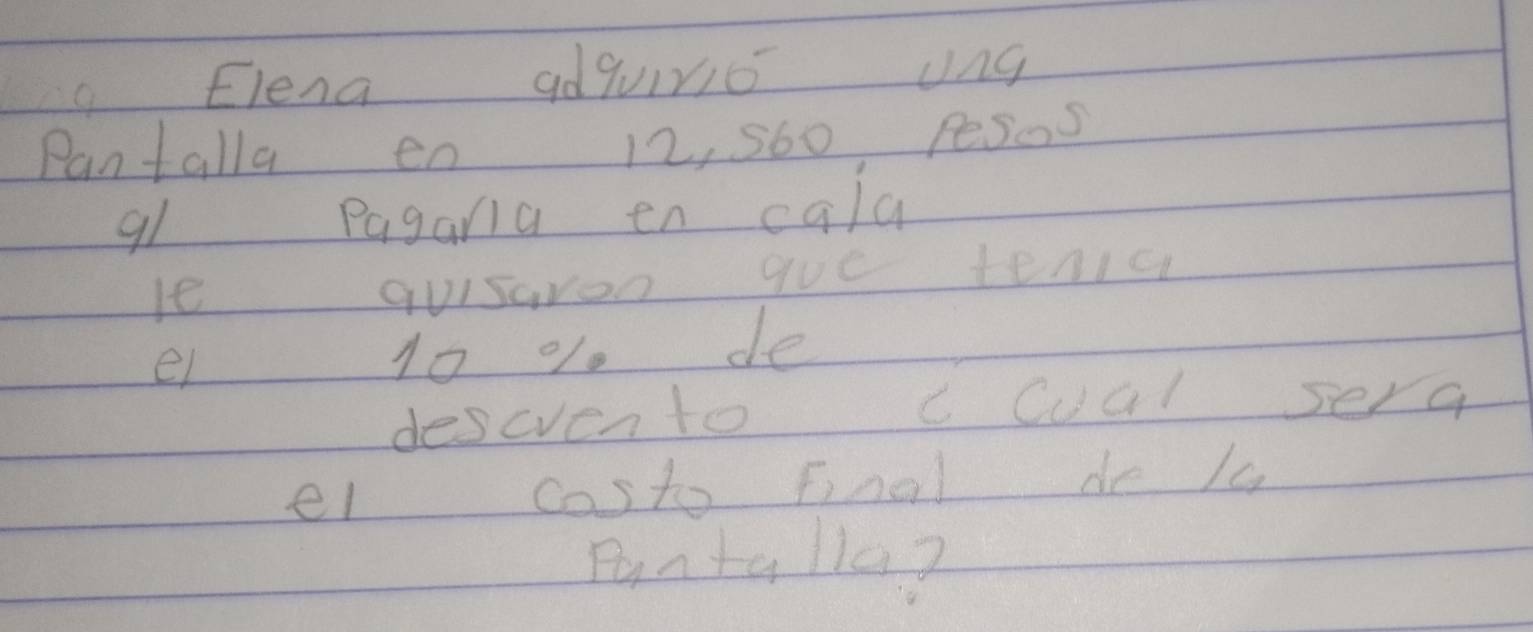 Elena adquirió una
Pantalla en 12,560 pesos
al Pagarla en caja
le avisaron que tenia
el 10 % de
descuento ¿ Cual sera
el costo Final de la
Pantalla?